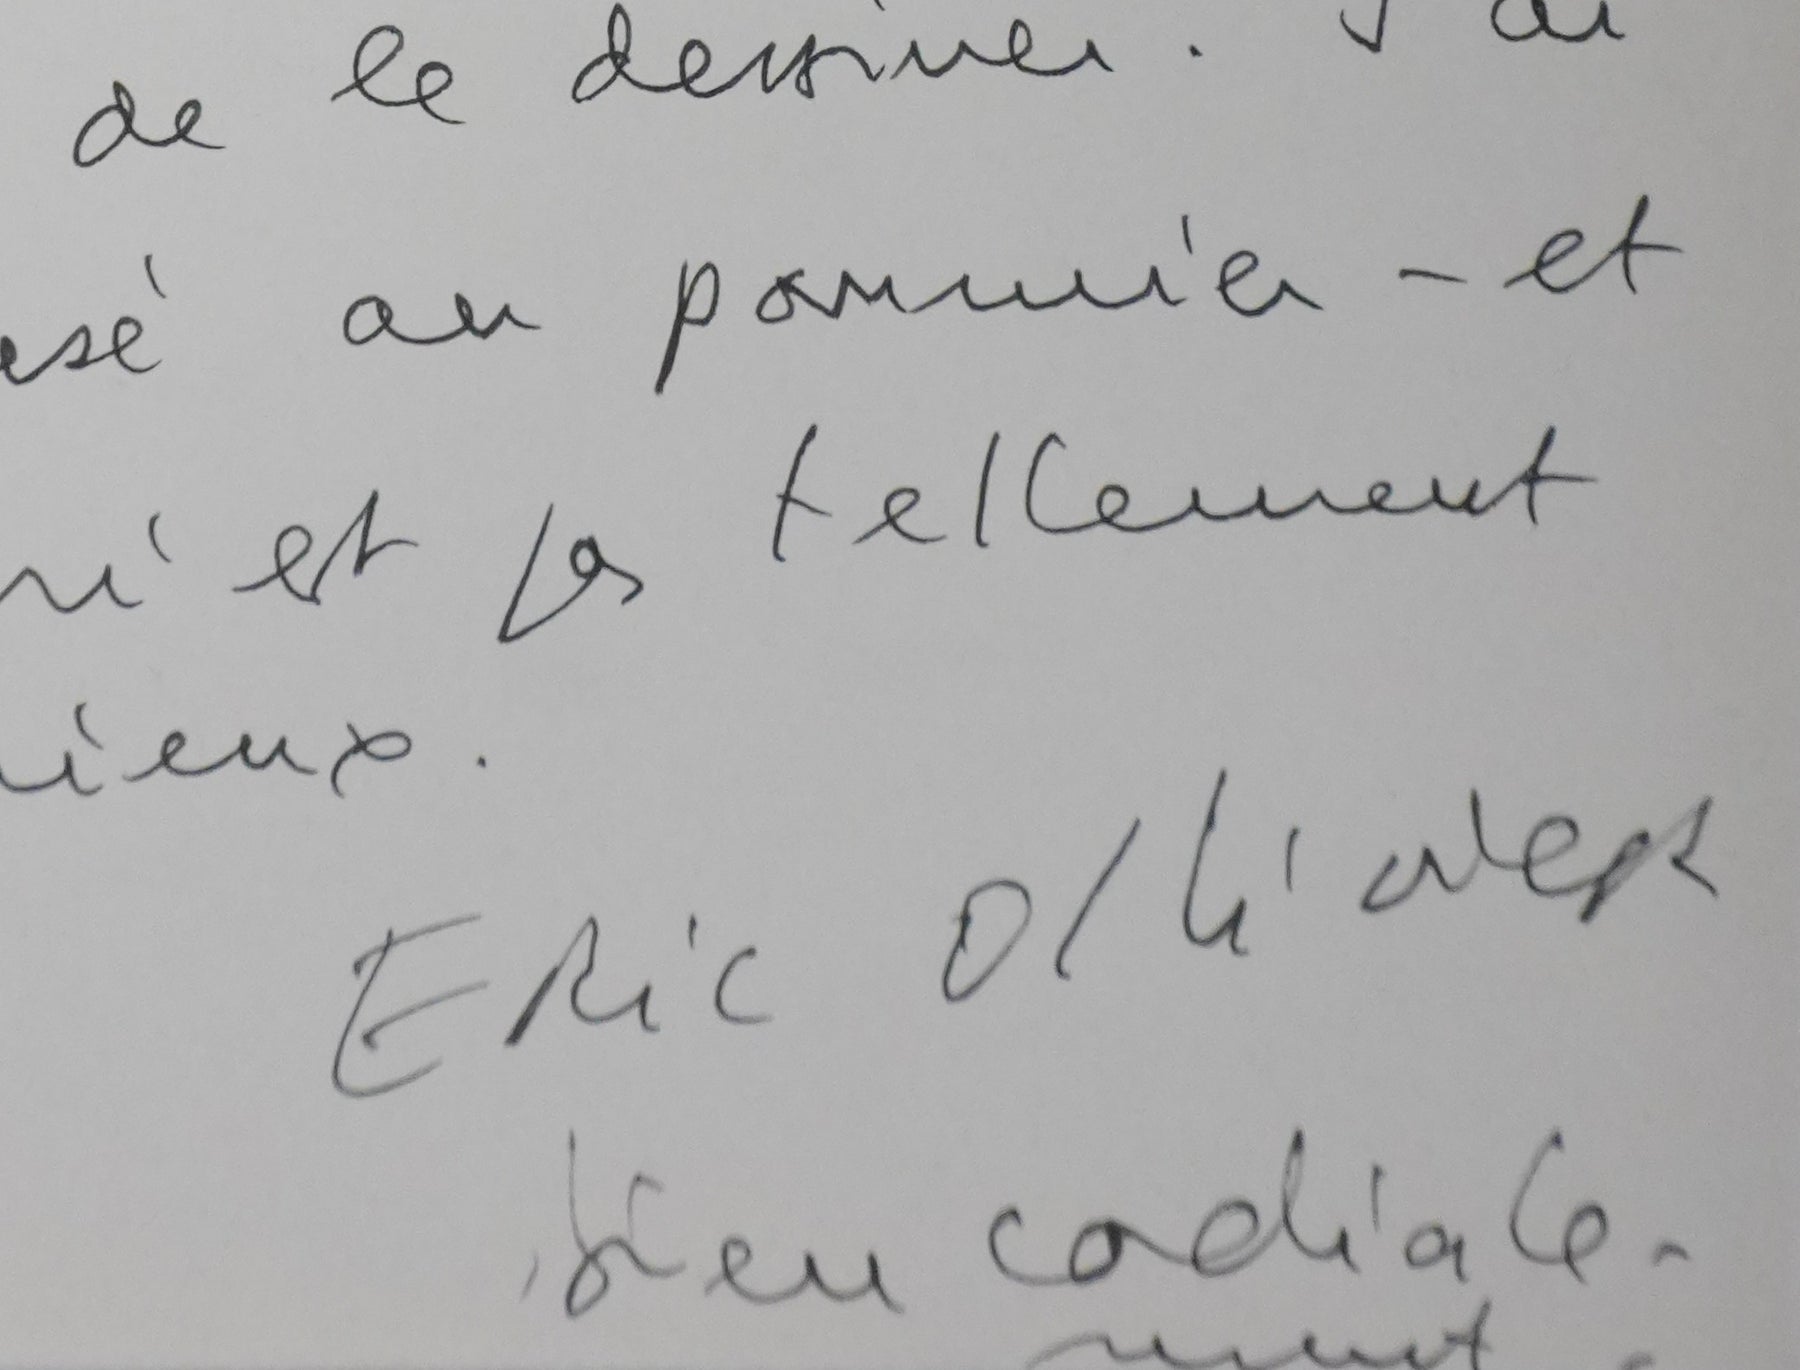 de le dessiner. J'ai
ensé au pommier - et
ri est pas tellement
ieux.
ERic Ollivier
bien cordiale-
ment.